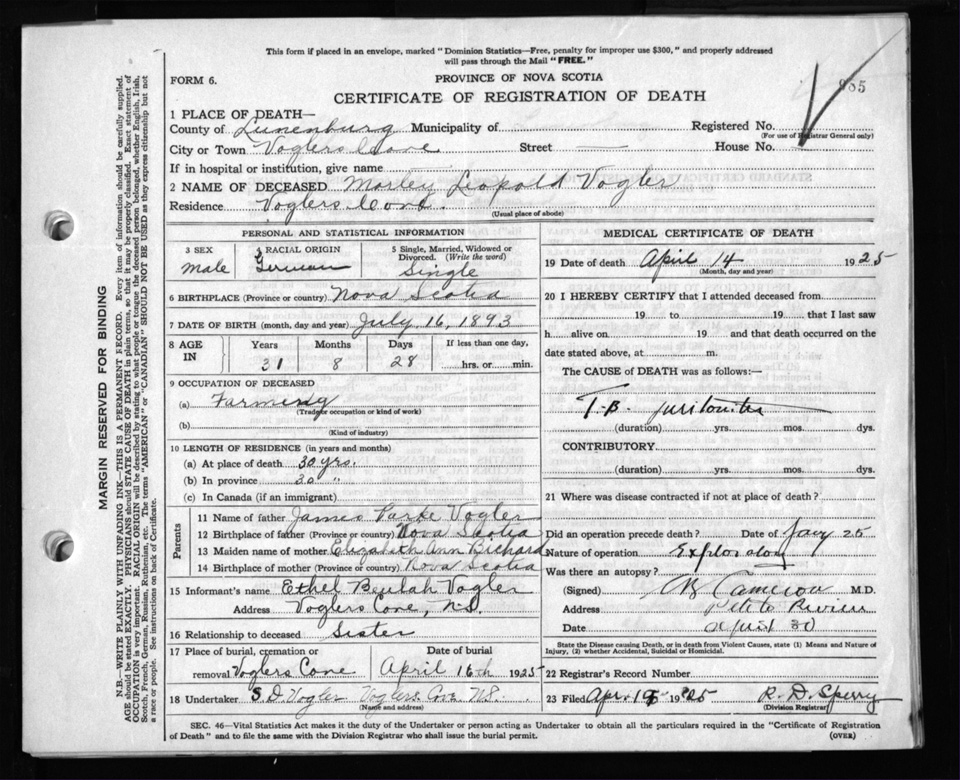 This form if placed in an envelope, marked "Dominion Statistics—Free, penalty for improper use $300," and properly addressed
will pass through the Mail "FREE."
FORM 6. PROVINCE OF NOVA SCOTIA 985
CERTIFICATE OF REGISTRATION OF DEATH
1 PLACE OF DEATH—
County of Lunenburg Municipality of Registered No.
(For use of Registrar General only)
City or Town Voglers Cove Street — House No. —
If in hospital or institution, give name
2 NAME OF DECEASED Morley Leopold Vogler
Residence Voglers Cove.
(Usual place of abode)
PERSONAL AND STATISTICAL INFORMATION
3 SEX 4 RACIAL ORIGIN 5 Single, Married, Widowed or
Divorced. (Write the word)
male German Single
6 BIRTHPLACE (Province or country) Nova Scotia
7 DATE OF BIRTH (month, day and year) July 16, 1893
8 AGE IN Years Months Days If less than one day,
31 8 28 hrs. or min.
9 OCCUPATION OF DECEASED
(a) Farming
(Trade or occupation or kind of work)
(b)
(Kind of industry)
10 LENGTH OF RESIDENCE (in years and months)
(a) At place of death 30 yrs.
(b) In province 30 "
(c) In Canada (if an immigrant)
Parents
11 Name of father James Parke Vogler
12 Birthplace of father (Province or country) Nova Scotia
13 Maiden name of mother Elizabeth Ann Richard
14 Birthplace of mother (Province or country) Nova Scotia
15 Informant's name Ethel Beulah Vogler
Address Voglers Cove, N.S.
16 Relationship to deceased Sister
17 Place of burial, cremation or Date of burial
removal Voglers Cove April 16th 1925
18 Undertaker S D Vogler Voglers Cove N.S.
(Name and address)
MEDICAL CERTIFICATE OF DEATH
19 Date of death April 14 1925
(Month, day and year)
20 I HEREBY CERTIFY that I attended deceased from
19 to 19 that I last saw
h alive on 19 and that death occurred on the
date stated above, at m.
The CAUSE of DEATH was as follows:—
T.B. peritonitis
(duration) yrs. mos. dys.
CONTRIBUTORY.
(duration) yrs. mos. dys.
21 Where was disease contracted if not at place of death?
Did an operation precede death? Date of Jany 25
Nature of operation Exploratory
Was there an autopsy?
(Signed) Cameron M.D.
Address Petite Riviere
Date April 30
State the Disease causing Death, or in death from Violent Causes, state (1) Means and Nature of
Injury, (2) whether Accidental, Suicidal or Homicidal.
22 Registrar's Record Number
23 Filed Apr. 1925 R. D. Sperry
(Division Registrar)
SEC. 46—Vital Statistics Act makes it the duty of the Undertaker or person acting as Undertaker to obtain all the particulars required in the "Certificate of Registration
of Death" and to file the same with the Division Registrar who shall issue the burial permit. (OVER)
MARGIN RESERVED FOR BINDING
N.B.—WRITE PLAINLY WITH UNFADING INK—THIS IS A PERMANENT RECORD. Every item of information should be carefully supplied.
AGE should be stated EXACTLY. PHYSICIANS should STATE CAUSE OF DEATH in plain terms, so that it may be properly classified. Exact statement of
OCCUPATION is very important. RACIAL ORIGIN will be described by stating to what people or tongue the deceased person belonged, whether English, Irish,
Scotch, French, German, Russian, Ruthenian, etc. The terms "AMERICAN" or "CANADIAN" SHOULD NOT BE USED as they express citizenship but not
a race or people. See instructions on back of Certificate.